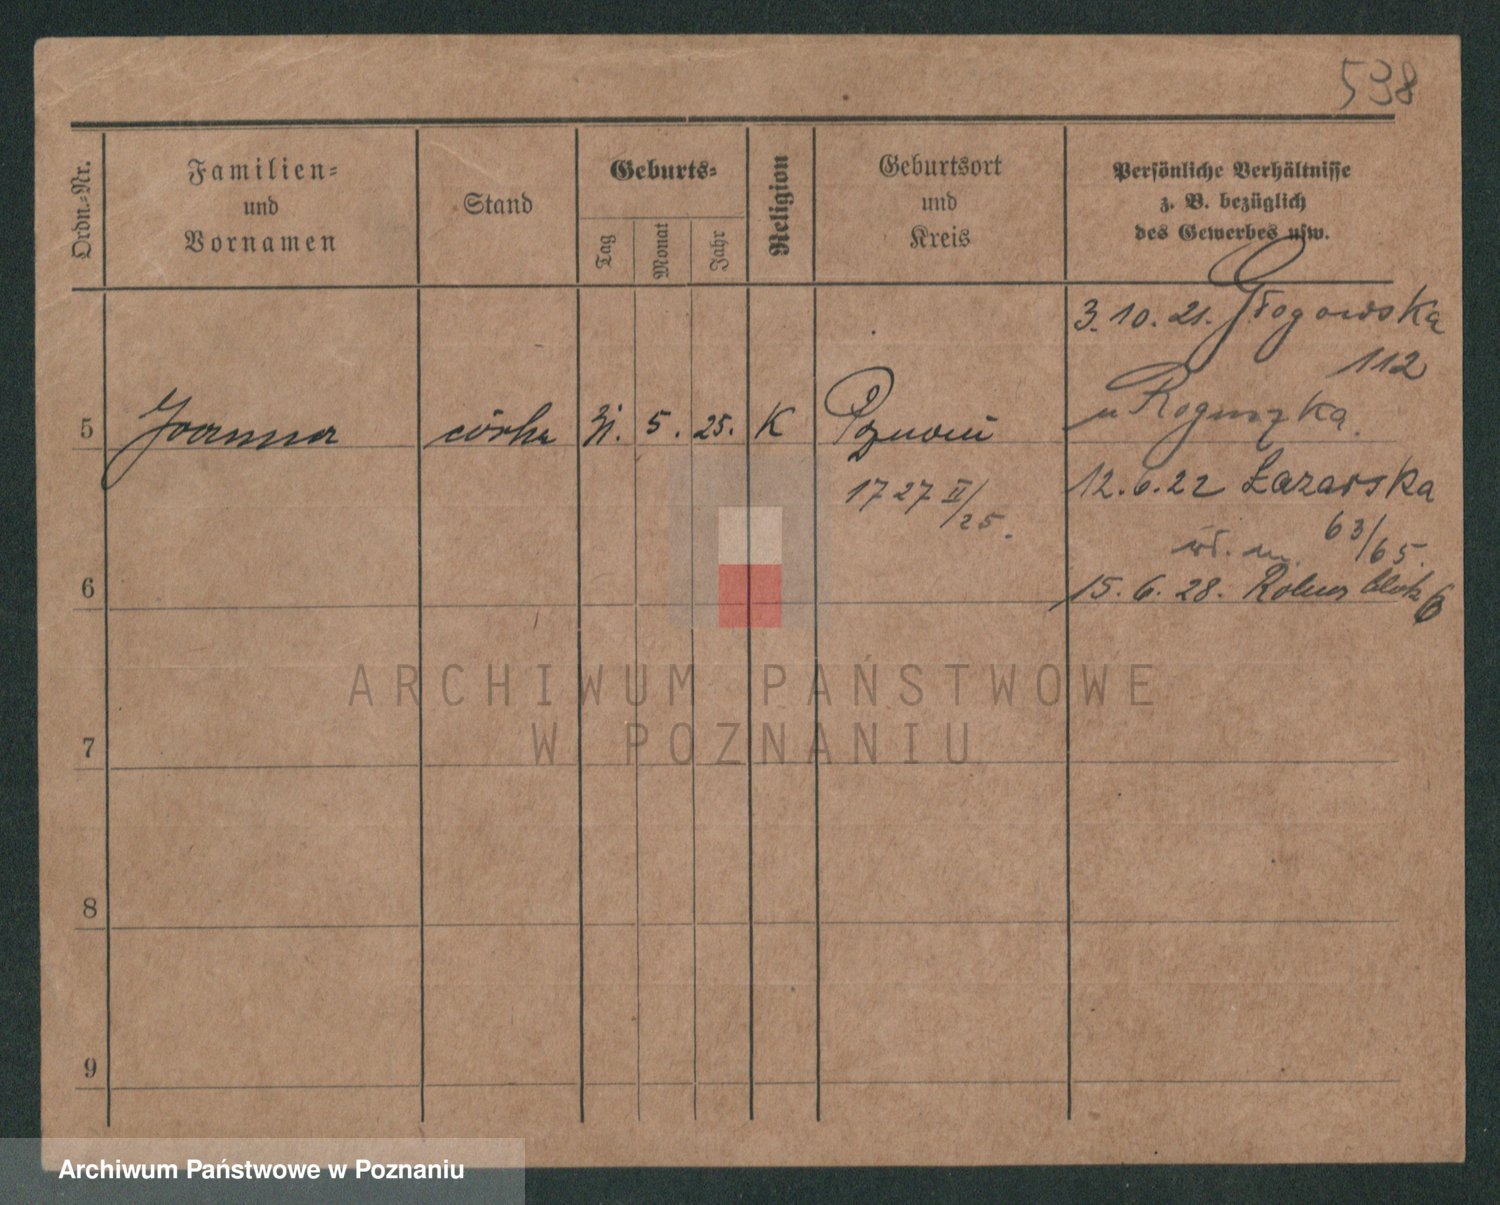 538
Ordn.-Nr.
Familien-
und
Vornamen
Stand
Geburts-
Tag
Monat
Jahr
Religion
Geburtsort
und
Kreis
Persönliche Verhältnisse
z. B. bezüglich
des Gewerbes usw.
3.10.21. Głogowska
112
u Roguszka.
5 Joanna córka 31. 5. 25. K Poznań
1727 II/25.
12.6.22 Łazarska
63/65.
wł. m.
15.6.28. blok 6
6
7
8
9
ARCHIWUM PAŃSTWOWE
W POZNANIU
Archiwum Państwowe w Poznaniu